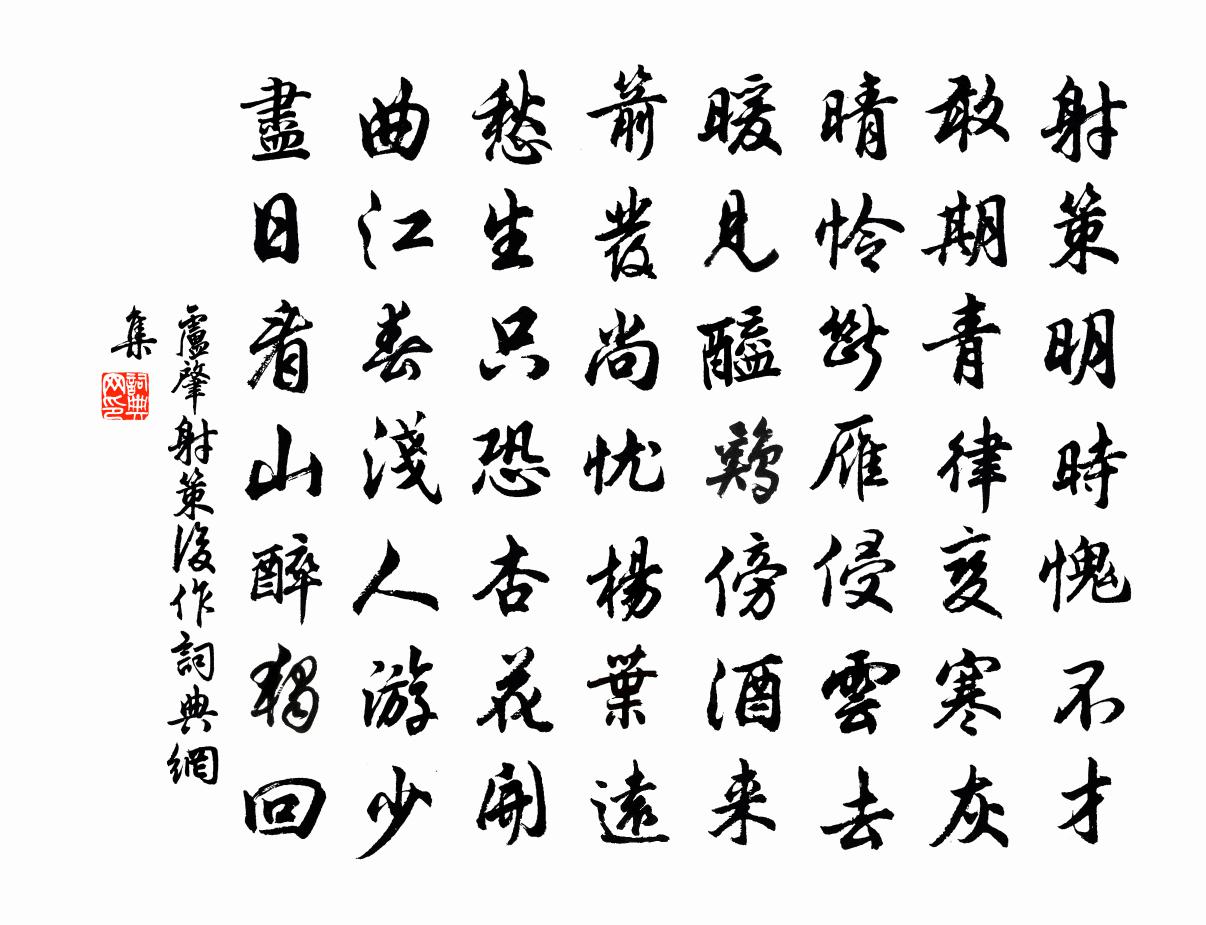 射策明時愧不才
敢期青律變寒灰
晴憐斷雁侵雲去
暖見醯鷄傍酒来
箭發尚忧楊葉遠
愁生只恐杏花開
曲江春淺人游少
盡日看山醉獨回
盧肇射策後作詞典網
集
詞典网印